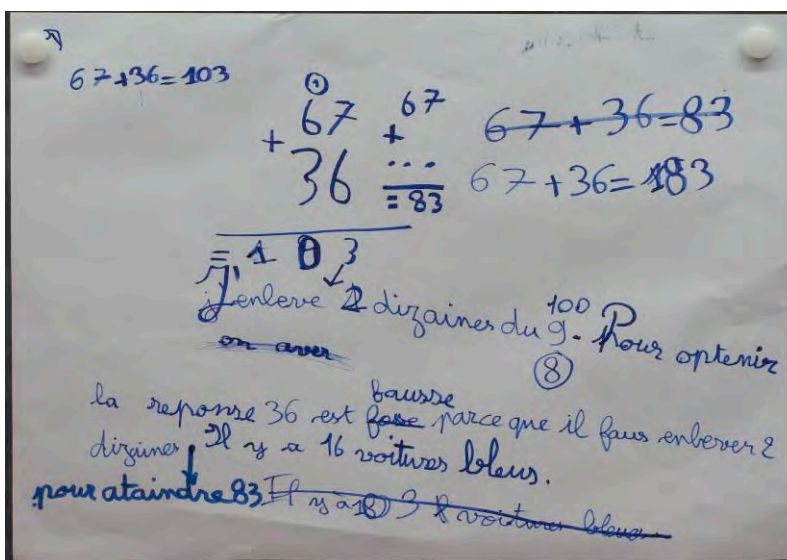 67+36=103
①
67
+
36
= 103
67
+
...
= 83
67 + 36=83
67 +36= 183
J'enleve 2 dizaines du 9. Pour optenir
100
⑧
on aver
la reponse 36 est fosse parceque il faus enbever 2
bausse
dizaines. Il y a 16 voitures bleus.
pour ataindre 83 Il y a 18 voitures bleus